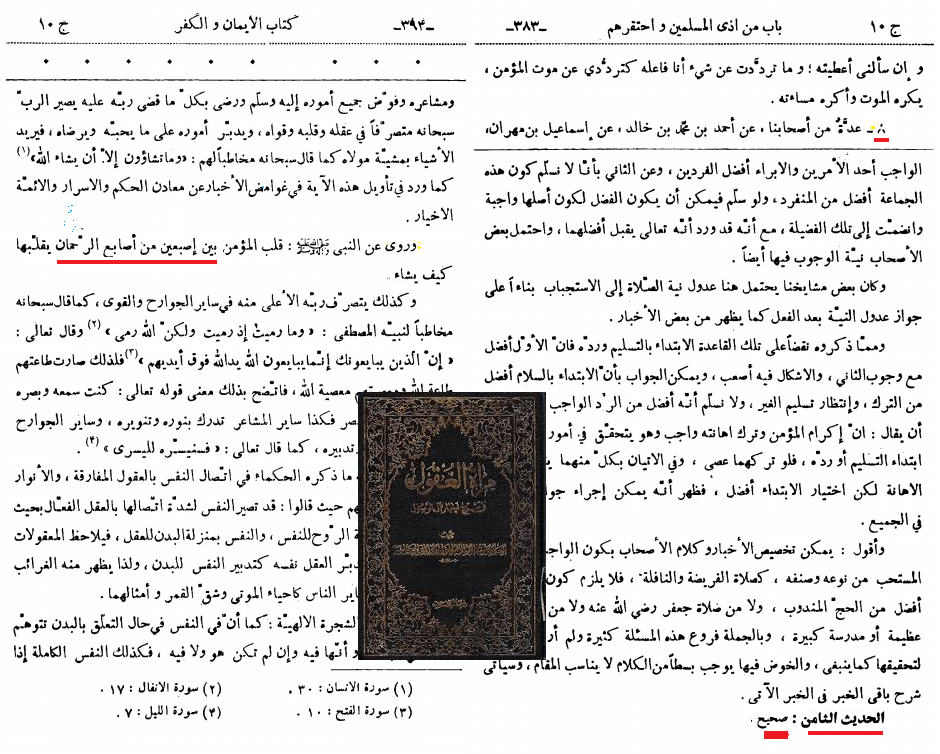 ج ١٠
باب من اذى المسلمين و احتقرهم
ـ٣٨٣ـ
و إن سألني أعطيته ؛ و ما تردَّدت عن شيء أنا فاعله كتردُّدي عن موت المؤمن ،
يكره الموت وأكره مساءته .
٨ـ عدَّةٌ من أصحابنا ، عن أحمد بن محمّد بن خالد ، عن إسماعيل بن مهران،
الواجب أحد الأمرين والابراء أفضل الفردين ، وعن الثاني بأنّا لا نسلّم كون هذه
الجماعة أفضل من المنفرد ، ولو سلّم فيمكن أن يكون الفضل لكون أصلها واجبة
وانضمّت إلى تلك الفضيلة ، مع أنّه قد ورد أنّه تعالى يقبل أفضلهما ، واحتمل بعض
الأصحاب نيّة الوجوب فيها أيضاً .
وكان بعض مشايخنا يحتمل هنا عدول نية الصّلاة إلى الاستحباب بناءاً على
جواز عدول النيّة بعد الفعل كما يظهر من بعض الأخبار .
وممّا ذكروه نقضاً على تلك القاعدة الابتداء بالتسليم وردّه فانّ الأوّل أفضل
مع وجوب الثاني ، والاشكال فيه أصعب ، ويمكن الجواب بأنّ الابتداء بالسلام أفضل
من الترك ، وإنتظار تسليم الغير ، ولا نسلّم أنّه أفضل من الردّ الواجب
أن يقال : انّ إكرام المؤمن وترك اهانته واجب وهو يتحقّق في أمور
ابتداء التسليم أو ردّه ، فلو تركهما عصى ، وفي الاتيان بكلّ منهما
الاهانة لكن اختيار الابتداء أفضل ، فظهر أنّه يمكن إجراء
في الجميع .
وأقول : يمكن تخصيص الأخبار و كلام الأصحاب بكون الواجب
المستحب من نوعه وصنفه ، كصلاة الفريضة والنافلة ، فلا يلزم كون
أفضل من الحجّ المندوب ، ولا من صلاة جعفر رضي الله عنه ولا من
عظيمة أو مدرسة كبيرة ، وبالجملة فروع هذه المسئلة كثيرة ولم أر
لتحقيقها كما ينبغي ، والخوض فيها يوجب بسطاً من الكلام لا يناسب المقام ، وسيأتي
شرح باقى الخبر فى الخبر الآتى .
الحديث الثامن : صحيح .
ـ٣٩۴ـ
كتاب الأيمان و الكفر
ج ١٠
ومشاعره وفوّض جميع أموره إليه وسلّم ورضى بكلّ ما قضى ربّه عليه يصير الربّ
سبحانه متصرّفاً في عقله وقلبه وقواه ، ويدبّر أموره على ما يحبّه ويرضاه ، فيريد
الأشياء بمشيّة مولاه كما قال سبحانه مخاطباً لهم : «وما تشاؤون إلاّ أن يشاء الله»(١)
كما ورد في تأويل هذه الآية في غوامض الأخبار عن معادن الحكم والاسرار والائمّة
الاخيار .
وروى عن النبي ﷺ : قلب المؤمن بين إصبعين من أصابع الرّحمان يقلّبها
كيف يشاء .
وكذلك يتصرّف ربّه الأعلى منه في ساير الجوارح والقوى ، كما قال سبحانه
مخاطباً لنبيّه المصطفى : « وما رميت إذ رميت ولكنّ الله رمى » (٢) وقال تعالى :
« إنّ الّذين يبايعونك إنّما يبايعون الله يد الله فوق أيديهم »(٣) فلذلك صارت طاعتهم
طاعة الله ومعصيتهم معصية الله ، فاتّضح بذلك معنى قوله تعالى : كنت سمعه وبصره
فكذا ساير المشاعر تدرك بنوره وتنويره ، وساير الجوارح
تدبيره ، كما قال تعالى : « فسنيسّره لليسرى » (۴) .
ما ذكره الحكماء في اتّصال النفس بالعقول المفارقة ، والأنوار
حيث قالوا : قد تصير النفس لشدّة اتّصالها بالعقل الفعّال بحيث
الرّوح للنفس ، والنفس بمنزلة البدن للعقل ، فيلاحظ المعقولات
العقل نفسه كتدبير النفس للبدن ، ولذا يظهر منه الغرائب
ساير الناس كاحياء الموتى وشقّ القمر و أمثالهما .
الشجرة الالهيّة : كما أنّ في النفس في حال التعلّق بالبدن تتوهّم
أنّها فيه وإن لم تكن هو ولا فيه ، فكذلك النفس الكاملة إذا
(١) سورة الانسان : ٣٠ .
(٢) سورة الانفال : ١٧ .
(٣) سورة الفتح : ١٠ .
(۴) سورة الليل : ٧ .
مرآة العقول